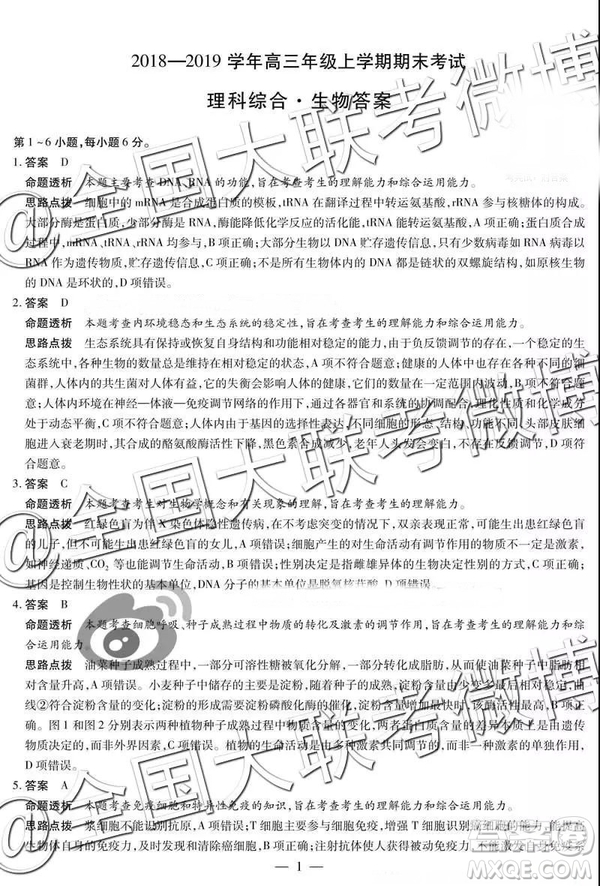 2018—2019 学年高三年级上学期期末考试
理科综合·生物答案
第1~6小题,每小题6分。
1. 答案 D
命题透析 本题主要考查DNA、RNA的功能,旨在考查考生的理解能力和综合运用能力。
思路点拨 细胞中的 mRNA 是合成蛋白质的模板,tRNA 在翻译过程中转运氨基酸,rRNA 参与核糖体的构成。
大部分酶是蛋白质,少部分酶是RNA,酶能降低化学反应的活化能,tRNA 能转运氨基酸,A 项正确;蛋白质合成
过程中,mRNA、tRNA、rRNA 均参与,B 项正确;大部分生物以 DNA 贮存遗传信息,只有少数病毒如 RNA 病毒以
RNA 作为遗传物质,贮存遗传信息,C 项正确;绝大部分生物的 DNA 是链状的双螺旋结构,有一部分原核生物
的 DNA 是环状的,D 项错误。
2. 答案 D
命题透析 本题考查内环境稳态和生态系统的稳定性,旨在考查考生的理解能力和综合运用能力。
思路点拨 生态系统具有保持或恢复自身结构和功能相对稳定的能力,由于负反馈调节的存在,一个稳定的生
态系统中,各种生物的数量总是维持在相对稳定的状态,A 项不符合题意;健康的人体中也有一个稳定的细
菌群,人体内的共生菌对人体有益,它的失衡会影响人体的健康,其数量在一定范围内波动,B 项不符合题
意;人体内环境在神经—体液—免疫调节网络的作用下,通过各器官和系统的协调配合,理化性质和化学成分
处于动态平衡,C 项不符合题意;人体内由于基因的选择性表达,不同细胞的形态、结构和功能不同,头部皮肤细
胞进入衰老期时,其合成的酪氨酸酶活性下降,黑色素合成减少,老年人头发会变白,不存在反馈调节,D 项符
合题意。
3. 答案 C
命题透析 本题考查考生对生物学概念和有关现象的理解,旨在考查考生的理解能力。
思路点拨 红绿色盲为伴 X 染色体隐性遗传病,在不考虑突变的情况下,双亲表现正常,可能生出患红绿色盲
的儿子,但不可能生出患红绿色盲的女儿,A 项错误;细胞产生的对生命活动有调节作用的物质不一定是激素,
如神经递质、CO2 等也能起调节作用,B 项错误;性别决定是指雌雄异体的生物决定性别的方式,C 项正确;
基因是控制生物性状的基本单位,DNA 分子的基本单位是脱氧核苷酸,D 项错误。
4. 答案 B
命题透析 本题考查细胞呼吸、种子成熟过程中物质的转化及激素的调节作用,旨在考查考生的理解能力和综
合运用能力。
思路点拨 油菜种子成熟过程中,一部分可溶性糖被氧化分解,一部分转化成脂肪,从而使油菜种子中脂肪相
对含量升高,A 项错误。小麦种子成熟过程中,淀粉的含量是增加的,而还原糖的含量随淀粉的增加而减少,曲
线②符合淀粉含量的变化;淀粉的形成需要淀粉磷酸化酶的催化,淀粉含量增加最快时,该酶活性最大,B 项正
确。图1和图2分别表示两种植物种子成熟过程中物质含量的变化,两者蛋白质含量的差异本质上是由遗传
物质决定的,而非外界因素,C 项错误。植物的生命活动是由多种激素共同调节的,而非一种激素的单独作用,
D 项错误。
5. 答案 A
命题透析 本题考查免疫细胞和特异性免疫,旨在考查考生的理解能力和综合运用能力。
思路点拨 浆细胞不能识别抗原,A 项错误;T 细胞在免疫系统中
生物体自身的免疫力,及时发现和清除癌细胞,B 项正确;注射抗体使人获得被动免疫
— 1 —